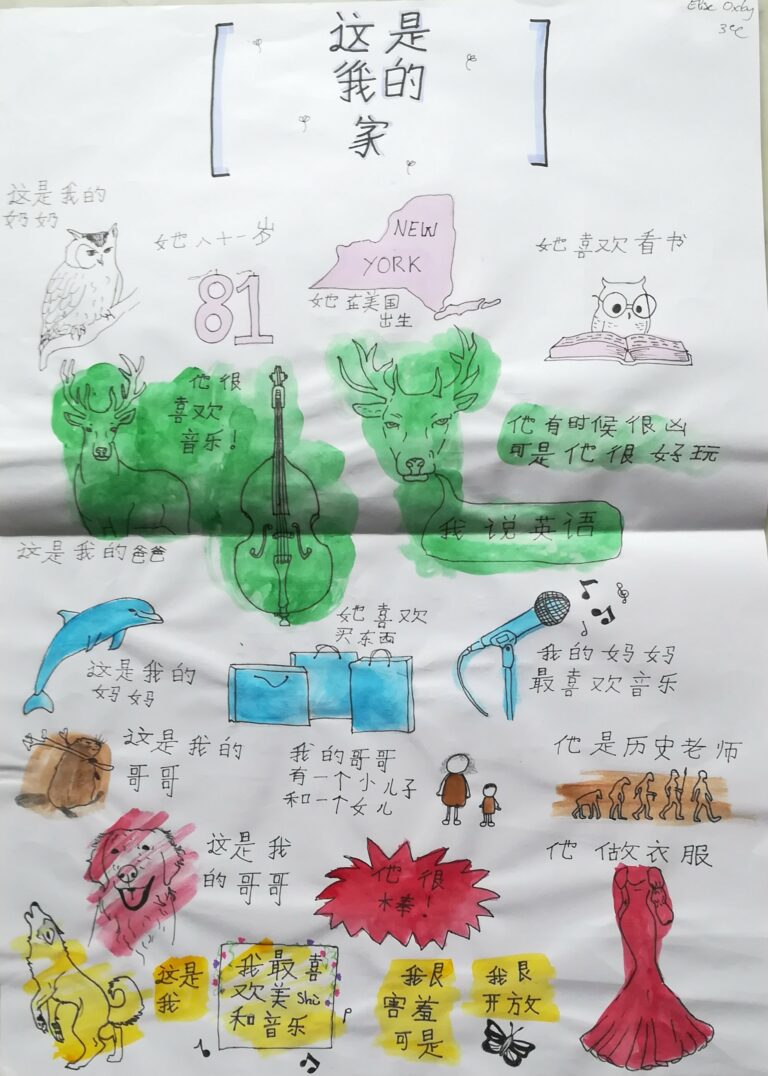 Elise Oxby
3e
这是
我的
家
这是我的
奶奶
她八十一岁
81
NEW
YORK
她在美国
出生
她喜欢看书
他很
喜欢
音乐！
他有时候很凶
可是他很好玩
我说英语
这是我的爸爸
她喜欢
买东西
这是我的
妈妈
我的妈妈
最喜欢音乐
这是我的
哥哥
我的哥哥
有一个小儿子
和一个女儿
他是历史老师
这是我
的哥哥
他很
棒！
他做衣服
这是
我
我最喜
欢美shù
和音乐
我艮
害羞
可是
我艮
开放